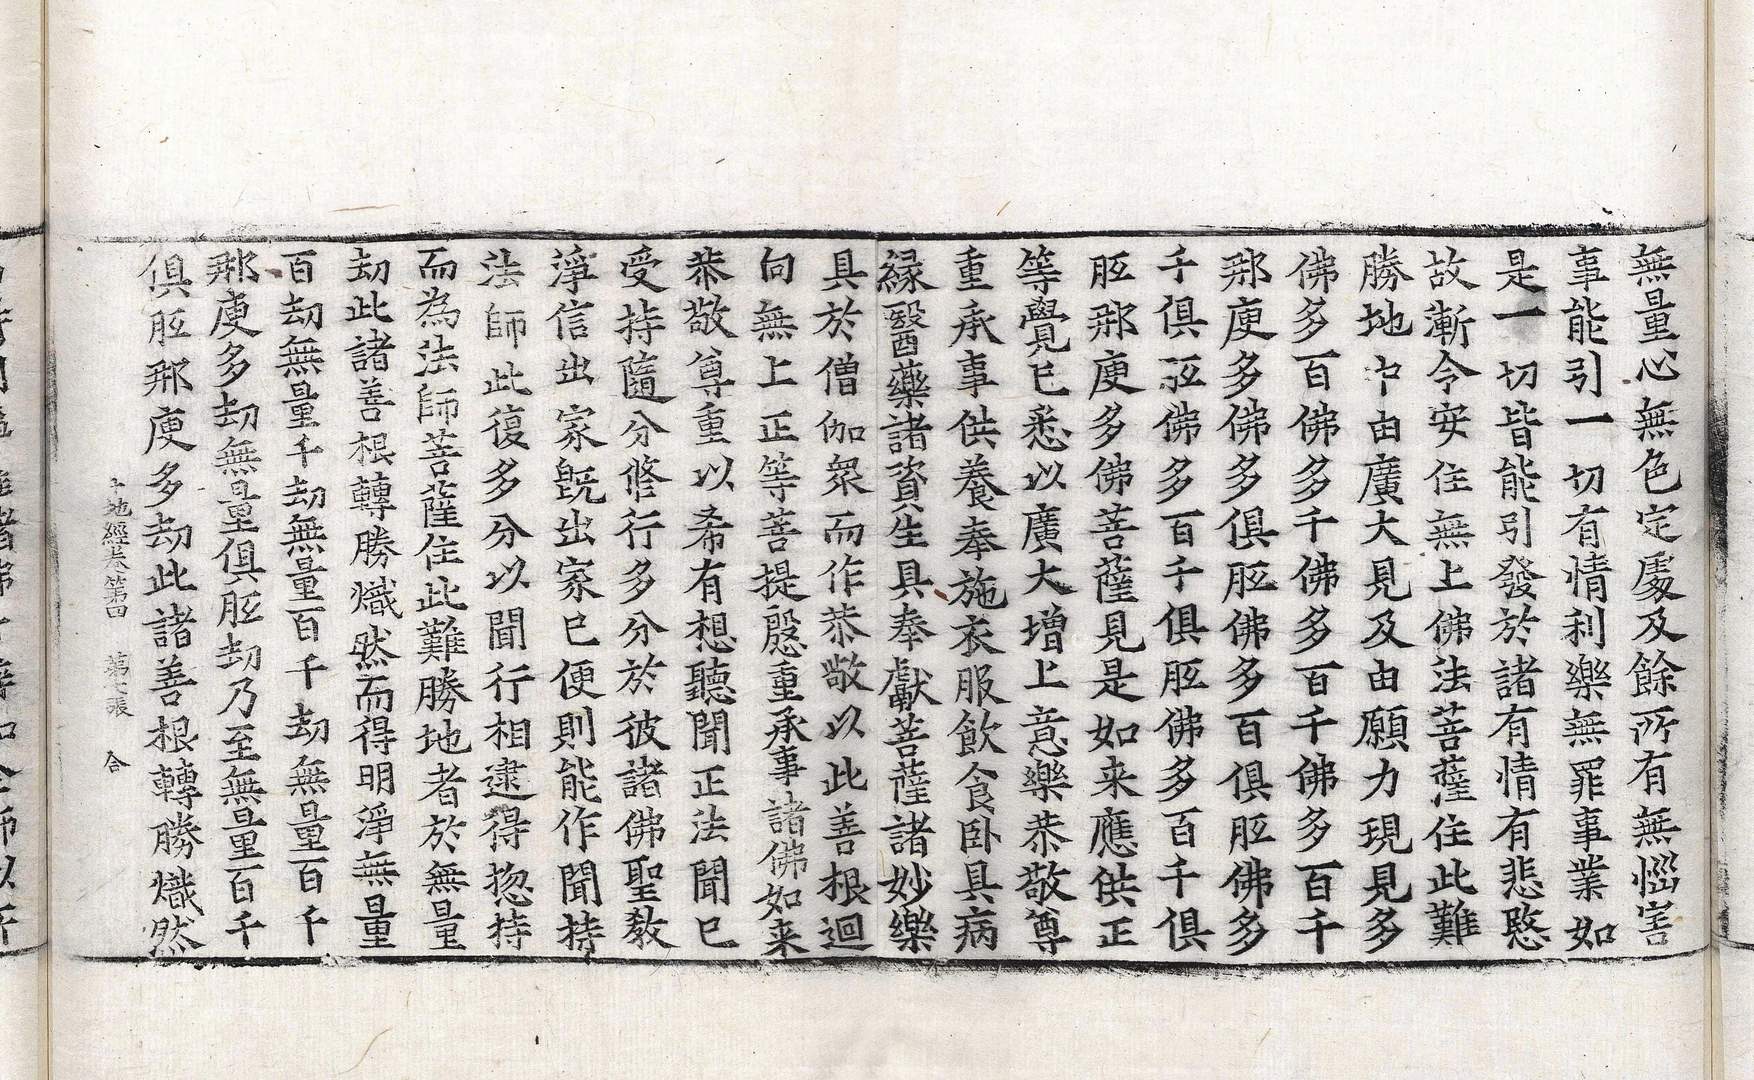 無量心無色定處及餘所有無惱害
事能引一切有情利樂無罪事業如
是一切皆能引發於諸有情有悲愍
故漸令安住無上佛法菩薩住此難
勝地中由廣大見及由願力現見多
佛多百佛多千佛多百千佛多百千
那庾多佛多俱胝佛多百俱胝佛多
千俱胝佛多百千俱胝佛多百千俱
胝那庾多佛菩薩見是如来應供正
等覺已悉以廣大增上意樂恭敬尊
重承事供養奉施衣服飲食卧具病
緣醫藥諸資生具奉獻菩薩諸妙樂
具於僧伽衆而作恭敬以此善根迴
向無上正等菩提慇重承事諸佛如来
恭敬尊重以希有想聽聞正法聞已
受持隨分修行多分於彼諸佛聖教
淨信出家旣出家已便則能作聞持
法師此復多分以聞行相逮得惣持
而為法師菩薩住此難勝地者於無量
劫此諸善根轉勝熾然而得明淨無量
百劫無量千劫無量百千劫無量百千
那庾多劫無量俱胝劫乃至無量百千
俱胝那庾多劫此諸善根轉勝熾然
十地經卷第四 第七張 合